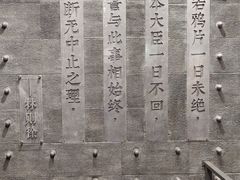 若鸦片一日未绝
本大臣一日不回，
誓与此事相始终，
断无中止之理。
—林则徐